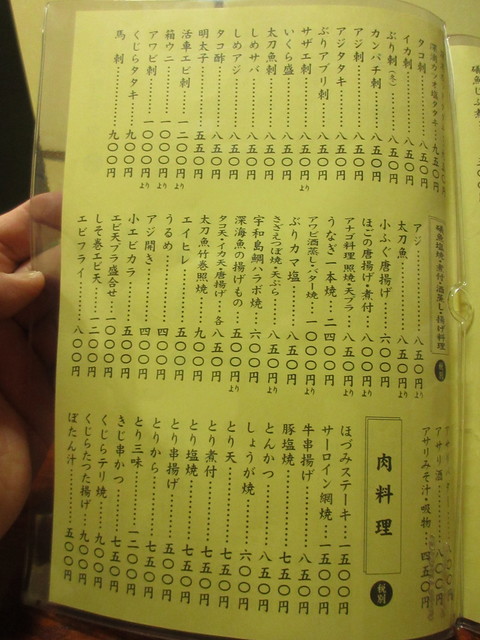 深海ウツボ塩タタキ‥九五〇円
タコ刺‥‥八五〇円
イカ刺‥‥八五〇円
ぶり刺(冬)‥‥八五〇円
カンパチ刺‥‥八五〇円
アジ刺‥‥八五〇円
アジタタキ‥‥八五〇円
ぶりアブリ刺‥‥八五〇円
サザエ刺‥‥八五〇円より
いくら盛‥‥八五〇円
太刀魚刺‥‥八五〇円
しめサバ‥‥八五〇円
しめアジ‥‥八五〇円
タコ酢‥‥八五〇円
明太子‥‥五五〇円
活車エビ刺‥‥一二〇〇円より
箱ウニ‥‥一〇〇〇円より
アワビ刺‥‥一〇〇〇円より
くじらタタキ‥‥九〇〇円
馬刺‥‥九〇〇円
磯魚塩焼・煮付・酒蒸し・揚げ料理
アジ‥‥八五〇円より
太刀魚‥‥八五〇円より
小ふぐ唐揚げ‥‥六〇〇円
ほごの唐揚げ・煮付‥‥八五〇円より
アナゴ料理 照焼・天プラ‥‥八五〇円より
うなぎ一本焼‥‥二四〇〇円
アワビ酒蒸し・バター焼‥‥一〇〇〇円より
ぶりカマ塩‥‥八五〇円
さざえつぼ焼・天ぷら‥‥八五〇円より
宇和島鯛ハラボ焼‥‥六〇〇円
深海魚の揚げもの‥‥五五〇円より
タコ天・イカ天・唐揚げ‥各八五〇円
太刀魚竹巻照焼‥‥九〇〇円
エイヒレ‥‥五〇〇円
うるめ‥‥四〇〇円
アジ開き‥‥四〇〇円
小エビカラ‥‥五五〇円
エビ天プラ盛合せ‥‥一二〇〇円
しそ巻エビ天‥‥一二〇〇円
エビフライ‥‥八〇〇円
アサリ酒‥‥八〇〇円
アサリみそ汁・吸物‥‥四五〇円
肉料理
税別
ほづみステーキ‥‥一五〇〇円
サーロイン網焼‥‥一五〇〇円
牛串揚げ‥‥八五〇円
豚塩焼‥‥七五〇円
とんかつ‥‥八五〇円
しょうが焼‥‥六〇〇円
とり天‥‥七五〇円
とり煮付‥‥七五〇円
とり塩焼‥‥七五〇円
とり串揚げ‥‥五〇〇円
とりから‥‥七五〇円
とり三味‥‥一二〇〇円
きじ串かつ‥‥七五〇円
くじらテリ焼‥‥九〇〇円
くじらたつた揚げ‥‥九〇〇円
ぼたん汁‥‥五〇〇円